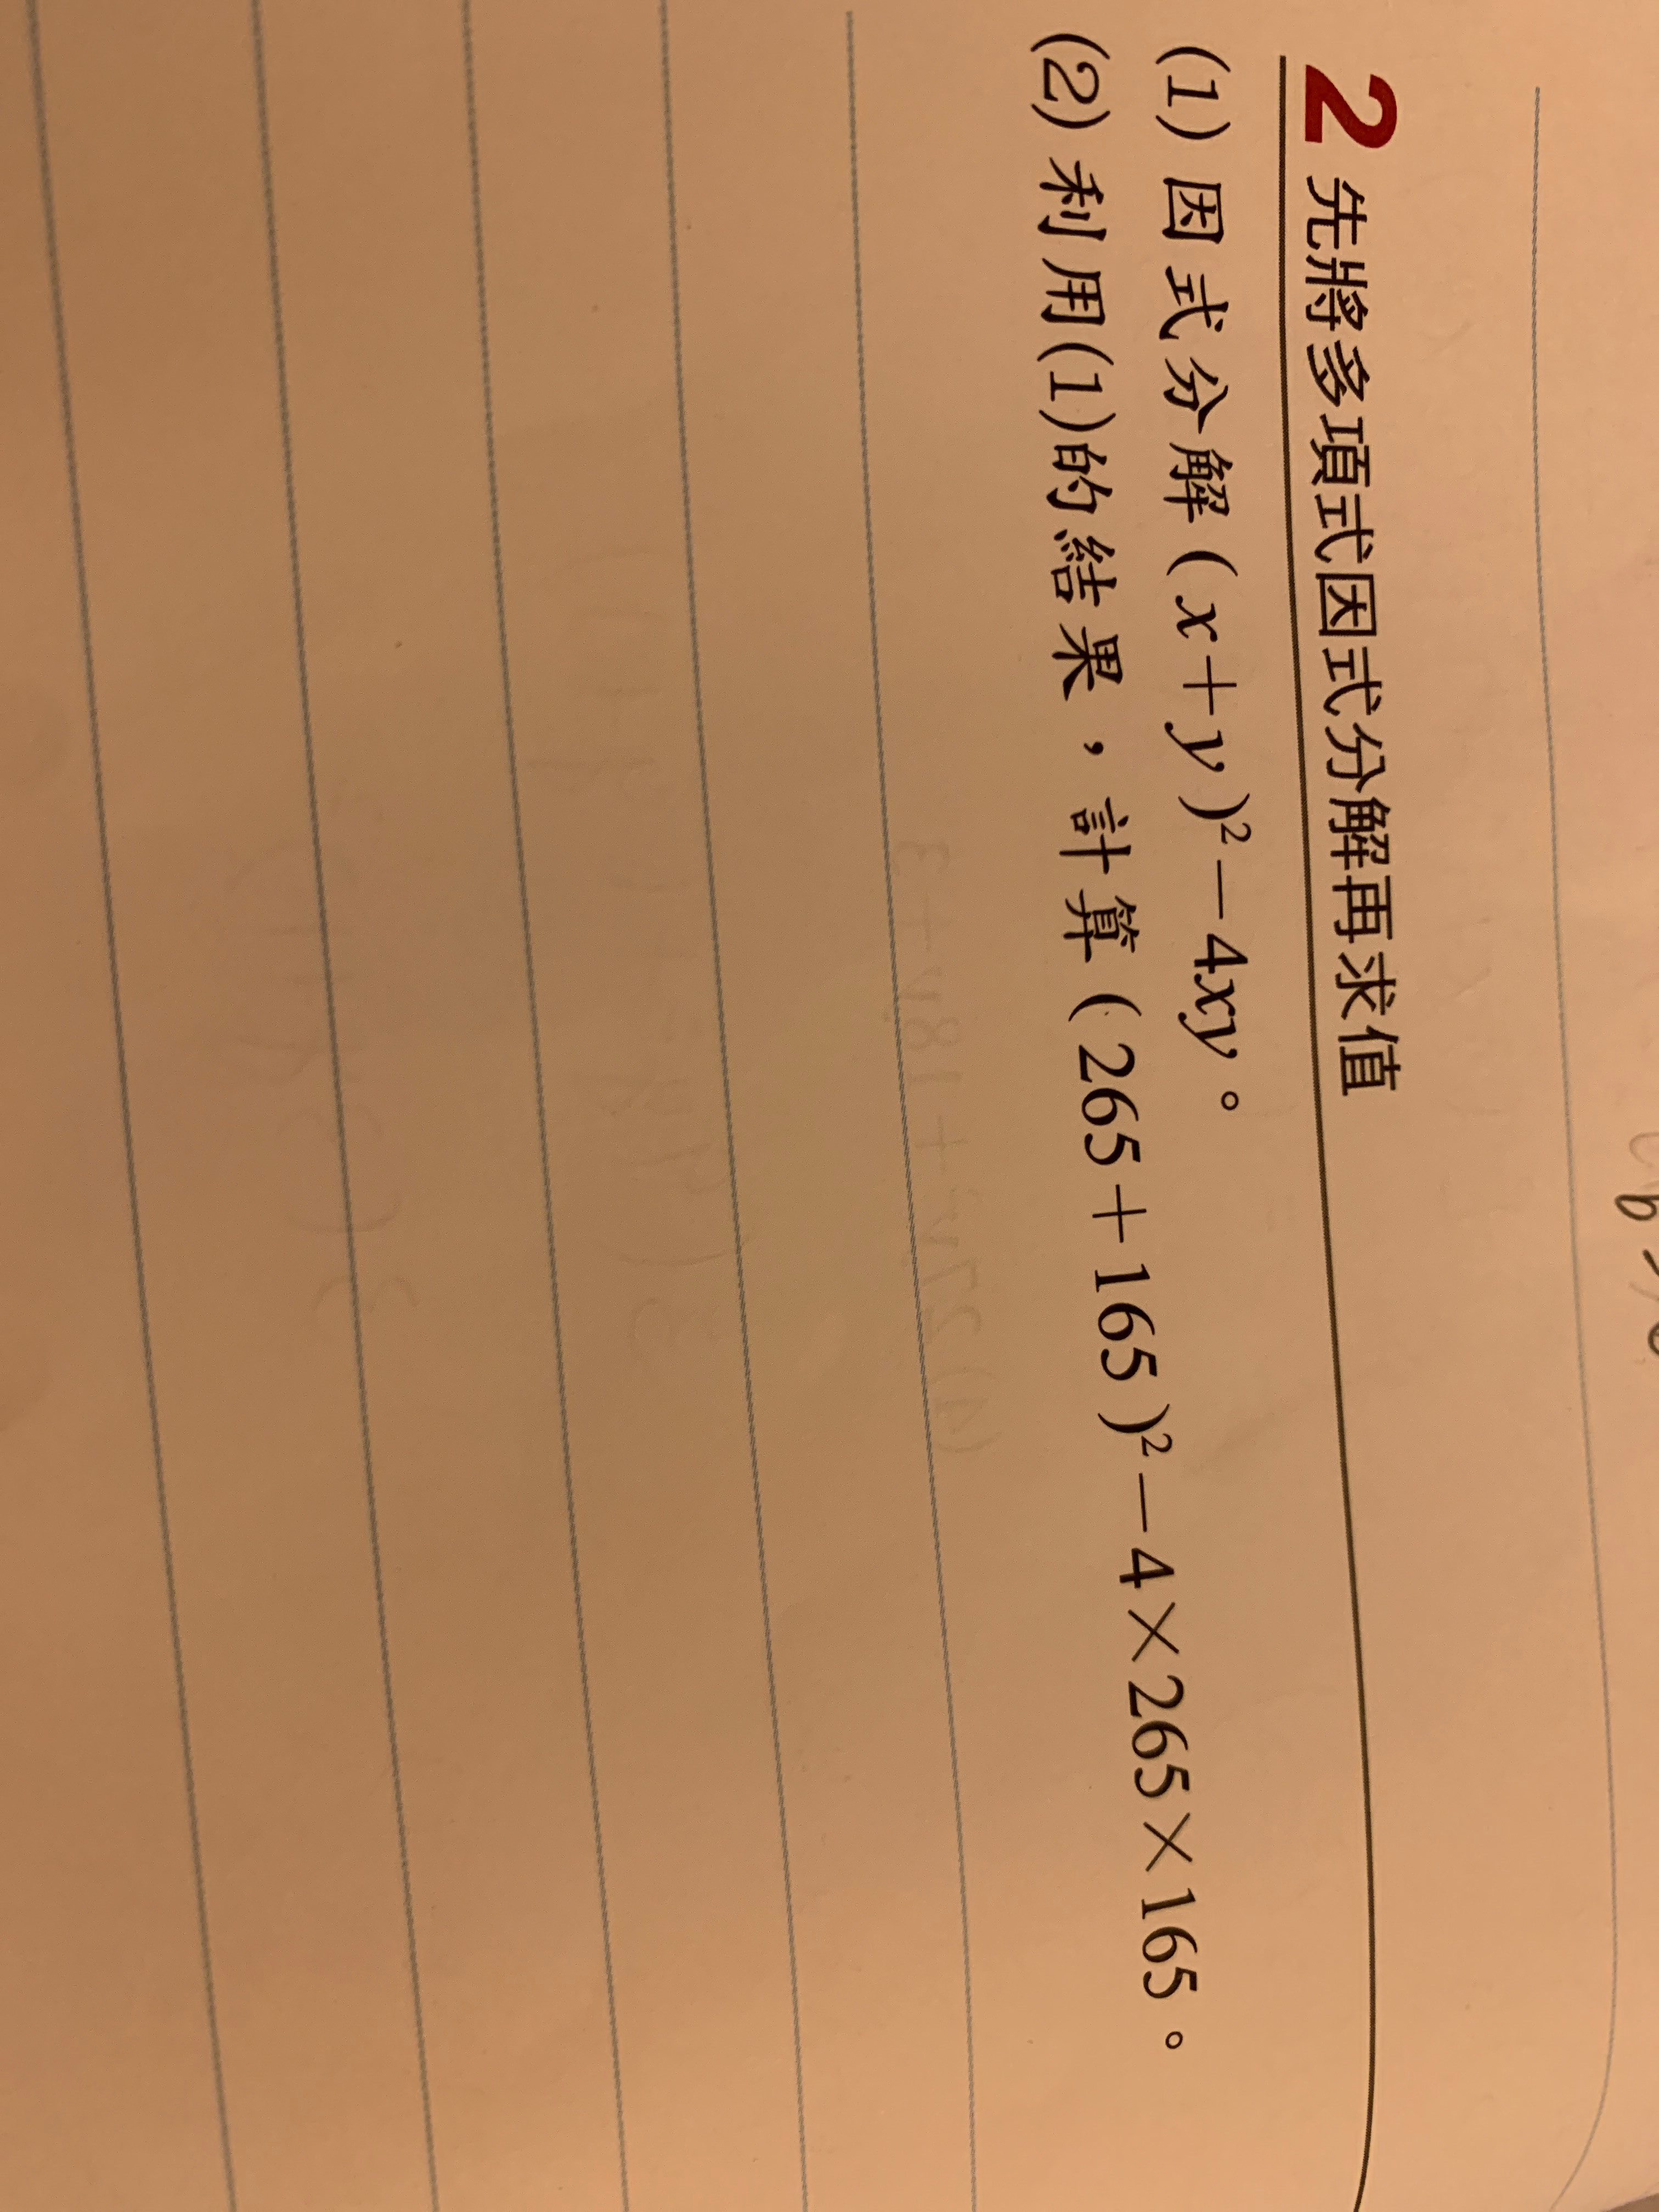 2 先將多項式因式分解再求值
(1) 因式分解(x+y)²−4xy。
(2) 利用(1)的結果，計算(265+165)²−4×265×165。